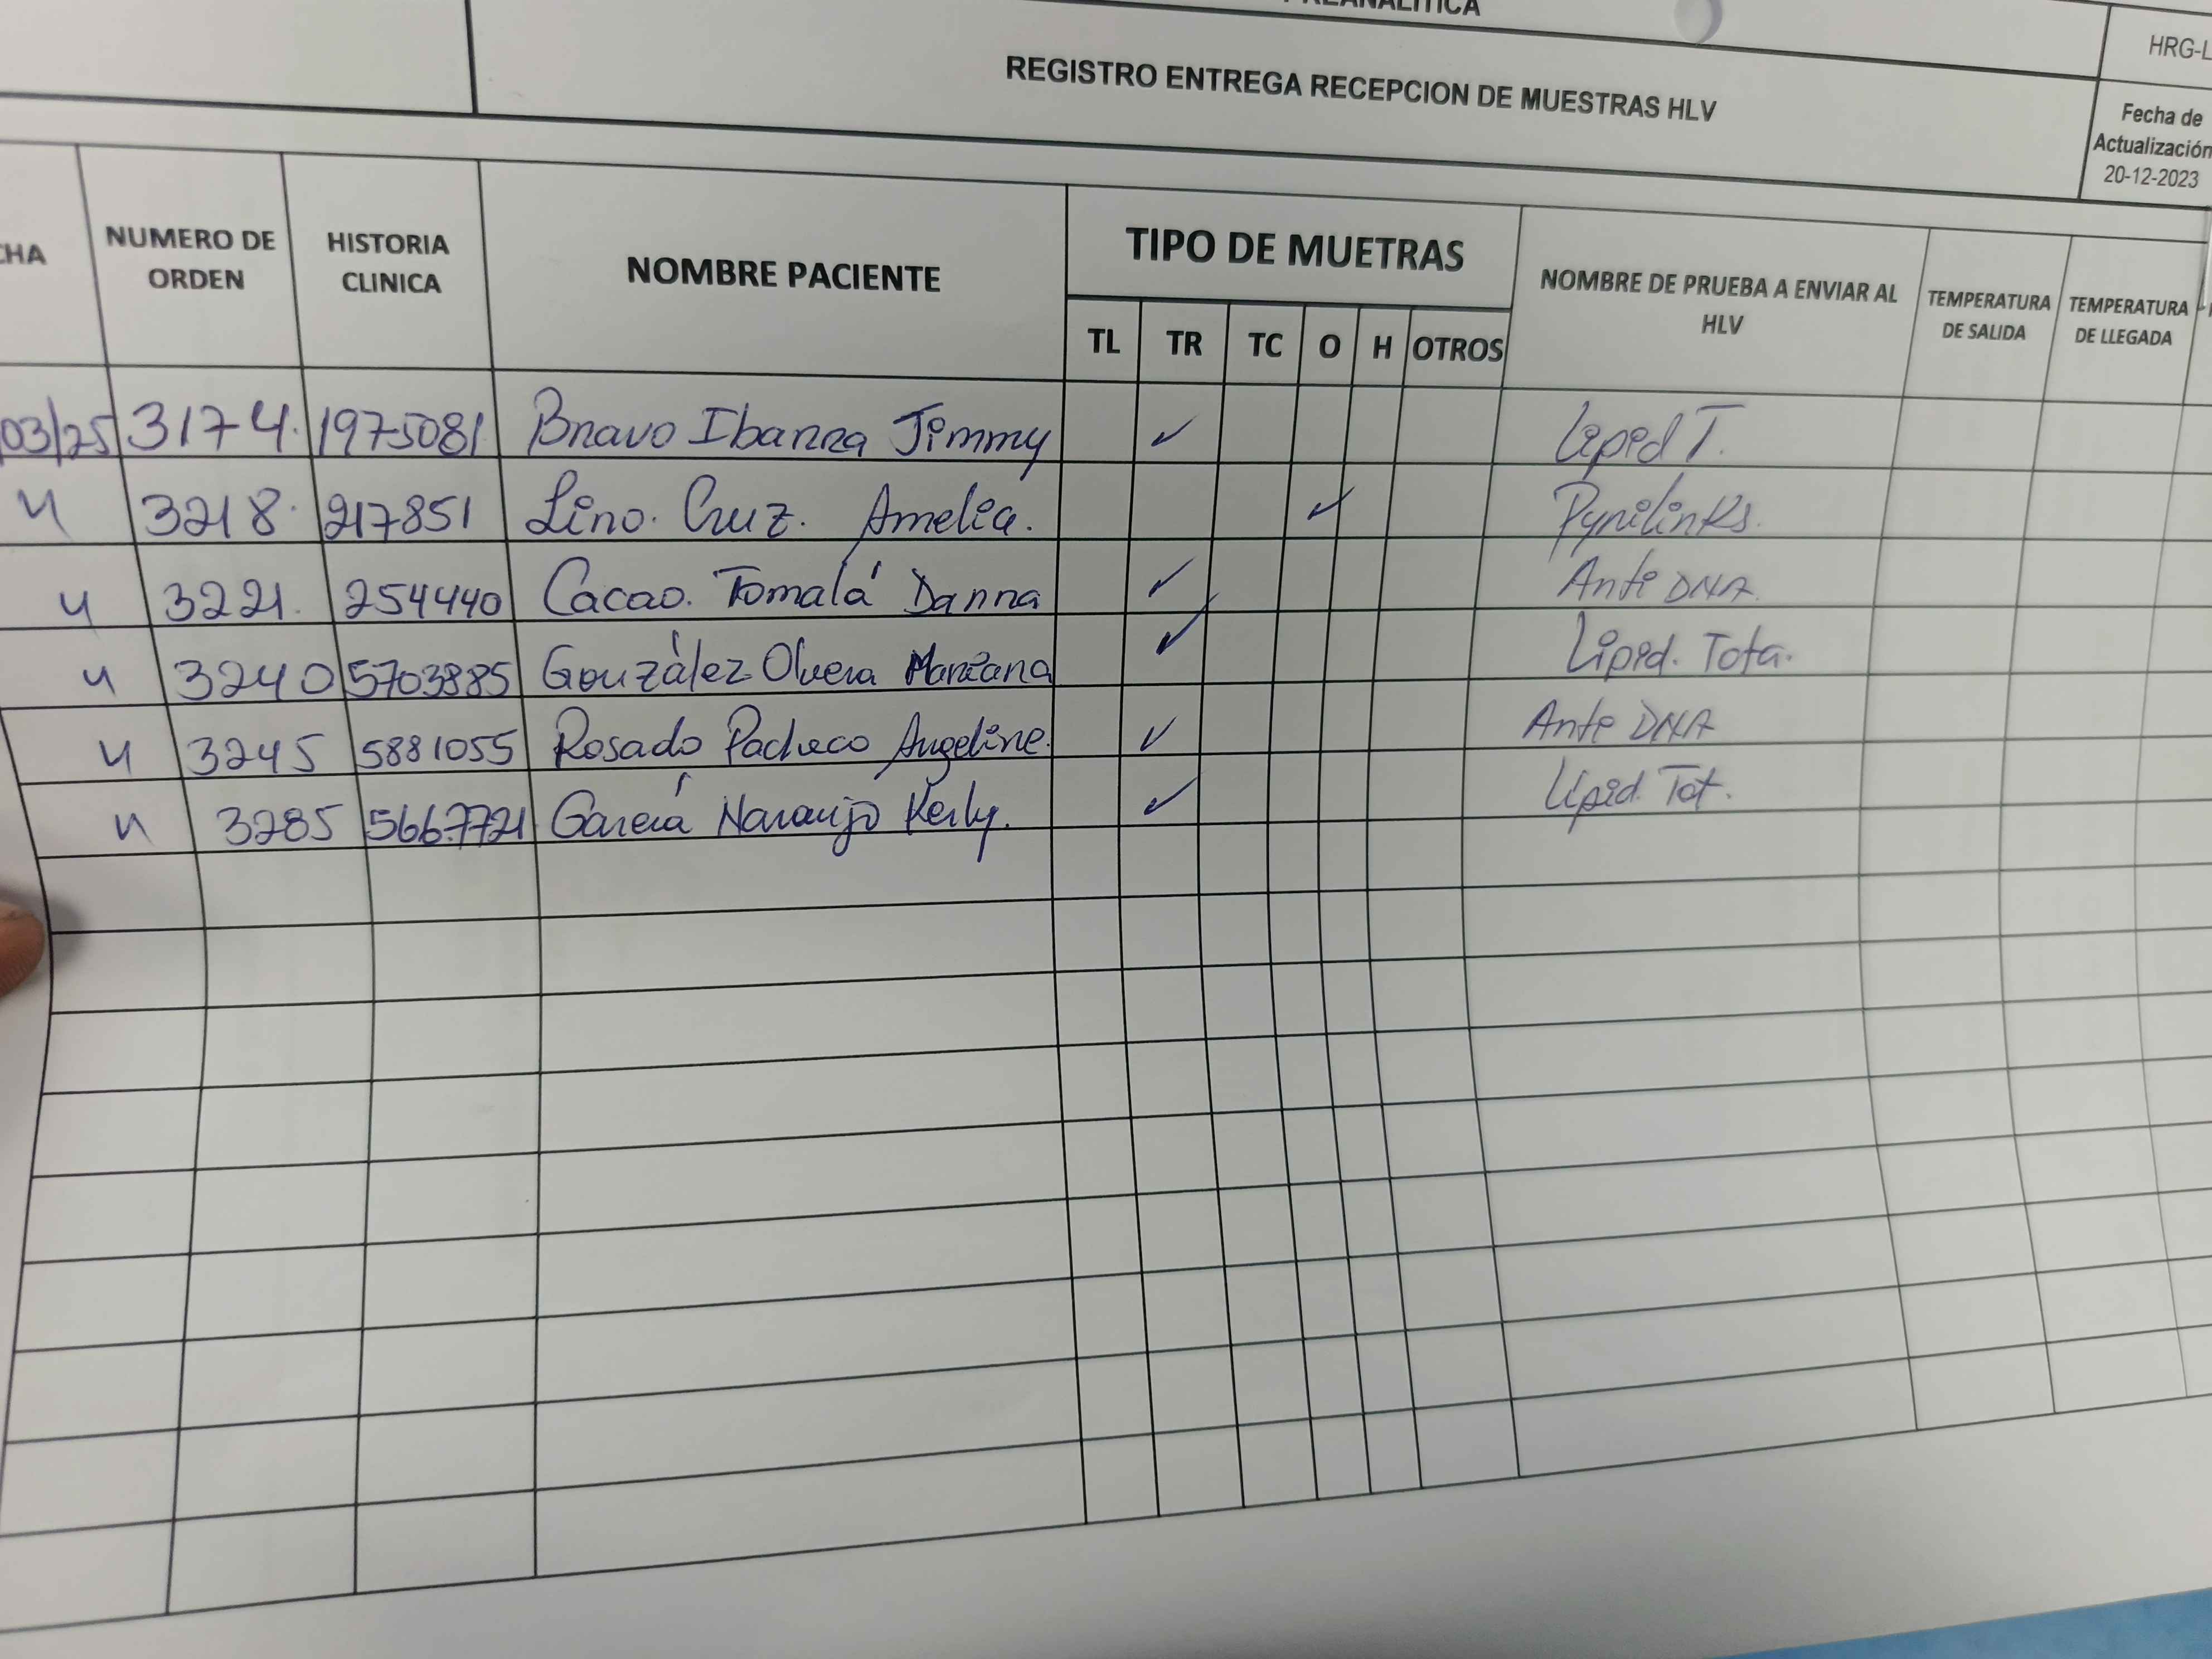 PREANALITICA
REGISTRO ENTREGA RECEPCION DE MUESTRAS HLV
HRG-L
Fecha de
Actualización
20-12-2023
CHA NUMERO DE ORDEN HISTORIA CLINICA NOMBRE PACIENTE TIPO DE MUETRAS NOMBRE DE PRUEBA A ENVIAR AL HLV TEMPERATURA DE SALIDA TEMPERATURA DE LLEGADA
TL TR TC O H OTROS
03/25 3174. 1975081 Bravo Ibarra Jimmy ✓ Lipid T.
u 3218. 217851 Lino. Cruz. Amelia. ✓ Pyrilinks.
u 3221. 254440 Cacao. Tomalá Danna ✓ Anti DNA.
u 3240 5703885 González Olvera ✓ Lipid. Tota.
u 3245 5881055 Rosado Pacheco Angeline. ✓ Anti DNA
u 3285 5667721 García Naranjo Kerly. ✓ Lipid. Tot.